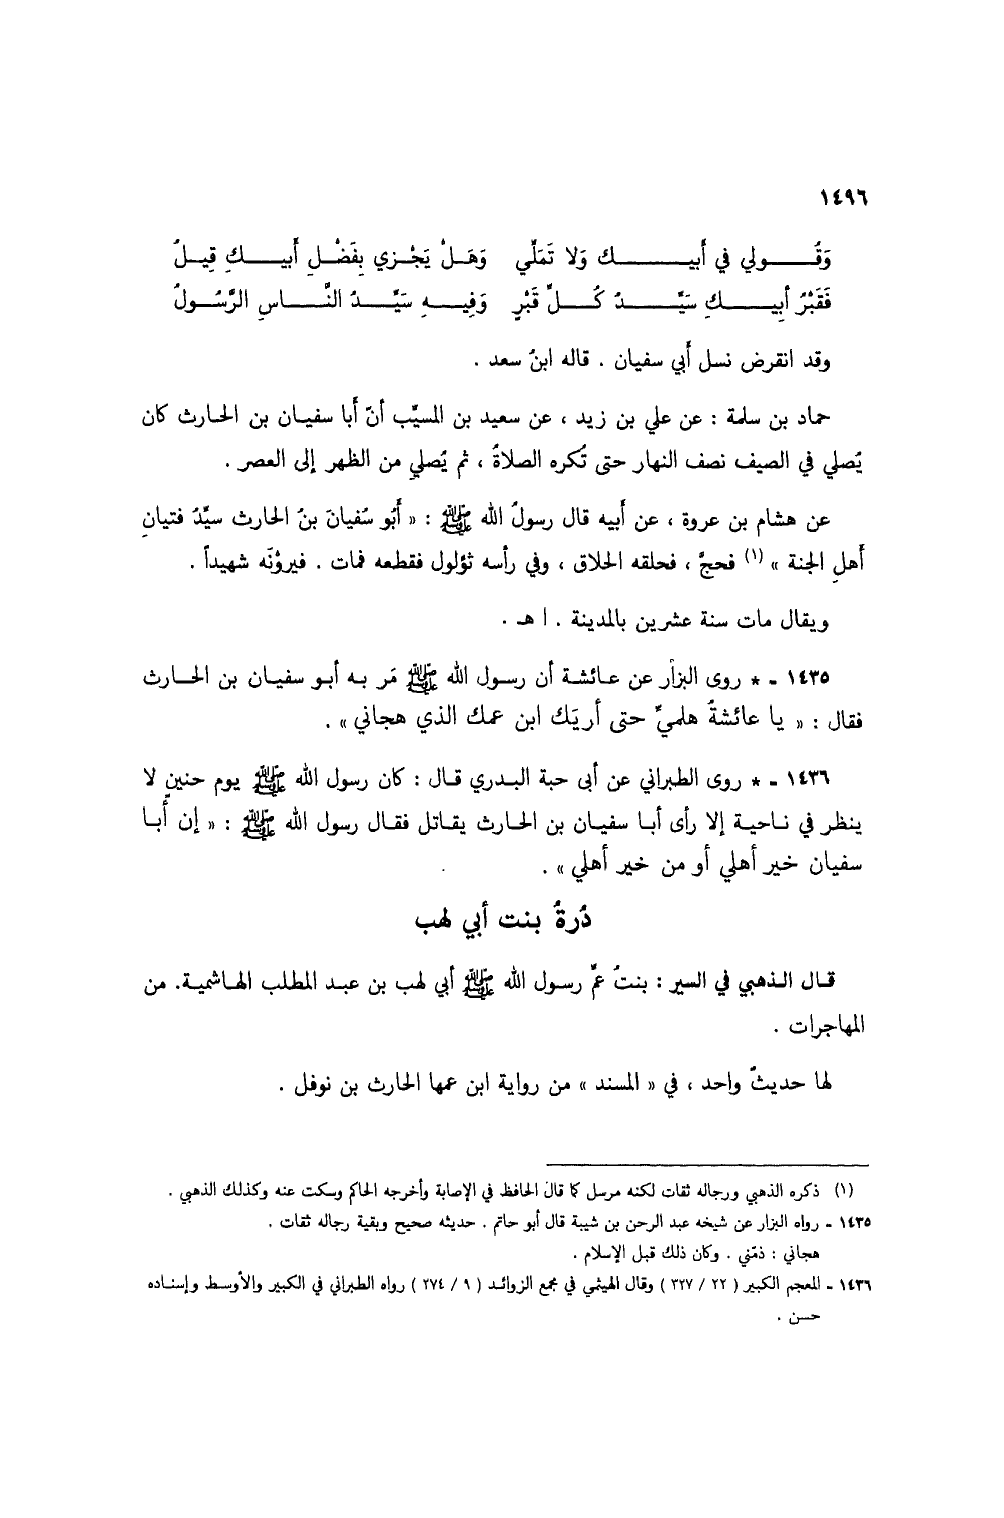 ١٤٩٦
وَقُولي في أَبيكِ وَلا تَمَلِّي وَهَلْ يَجْزي بِفَضْلِ أَبيكِ قِيلُ
فَقَبْرُ أَبِيكِ سَيِّدُ كُلِّ قَبْرٍ وَفِيهِ سَيِّدُ النَّاسِ الرَّسُولُ
وقد انقرض نسل أبي سفيان . قاله ابنُ سعد .
حماد بن سلمة : عن علي بن زيد ، عن سعيد بن المسيَّب أنّ أبا سفيان بن الحارث كان
يُصلي في الصيف نصف النهار حتى تُكره الصلاةُ ، ثم يُصلي من الظهر إلى العصر .
عن هشام بن عروة ، عن أبيه قال رسولُ الله ﷺ : « أَبُو سُفيانَ بنُ الحارث سيِّدُ فتيانِ
أهلِ الجنة » (١) فحجَّ ، فحلقه الحلاق ، وفي رأسه ثؤلول فقطعه فمات . فيروْنَه شهيداً .
ويقال مات سنة عشرين بالمدينة . ا هـ .
١٤٣٥ - * روى البزار عن عائشة أن رسول الله ﷺ مَر به أبو سفيان بن الحارث
فقال : « يا عائشةُ هلميِّ حتى أريَك ابن عمك الذي هجاني » .
١٤٣٦ - * روى الطبراني عن أبى حبة البدري قال : كان رسول الله ﷺ يوم حنينٍ لا
ينظر في ناحية إلا رأى أبا سفيان بن الحارث يقاتل فقال رسول الله ﷺ : « إن أبا
سفيان خير أهلي أو من خير أهلي » .
دُرةُ بنت أبي لهب
قال الذهبي في السير : بنتُ عمِّ رسول الله ﷺ أبي لهب بن عبد المطلب الهاشمية. من
المهاجرات .
لها حديثٌ واحد ، في « المسند » من رواية ابن عمها الحارث بن نوفل .
(١) ذكره الذهبي ورجاله ثقات لكنه مرسل كما قال الحافظ في الإصابة وأخرجه الحاكم وسكت عنه وكذلك الذهبي .
١٤٣٥ - رواه البزار عن شيخه عبد الرحمن بن شيبة قال أبو حاتم . حديثه صحيح وبقية رجاله ثقات .
هجاني : ذمّني . وكان ذلك قبل الإسلام .
١٤٣٦ - المعجم الكبير ( ٢٢ / ٣٢٧ ) وقال الهيثمي في مجمع الزوائد ( ٩ / ٢٧٤ ) رواه الطبراني في الكبير والأوسط وإسناده
حسن .